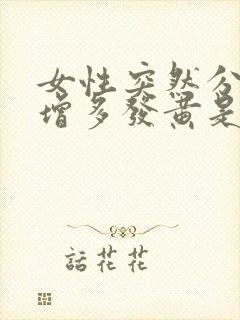 女性突然分
增多發黃是
話花花